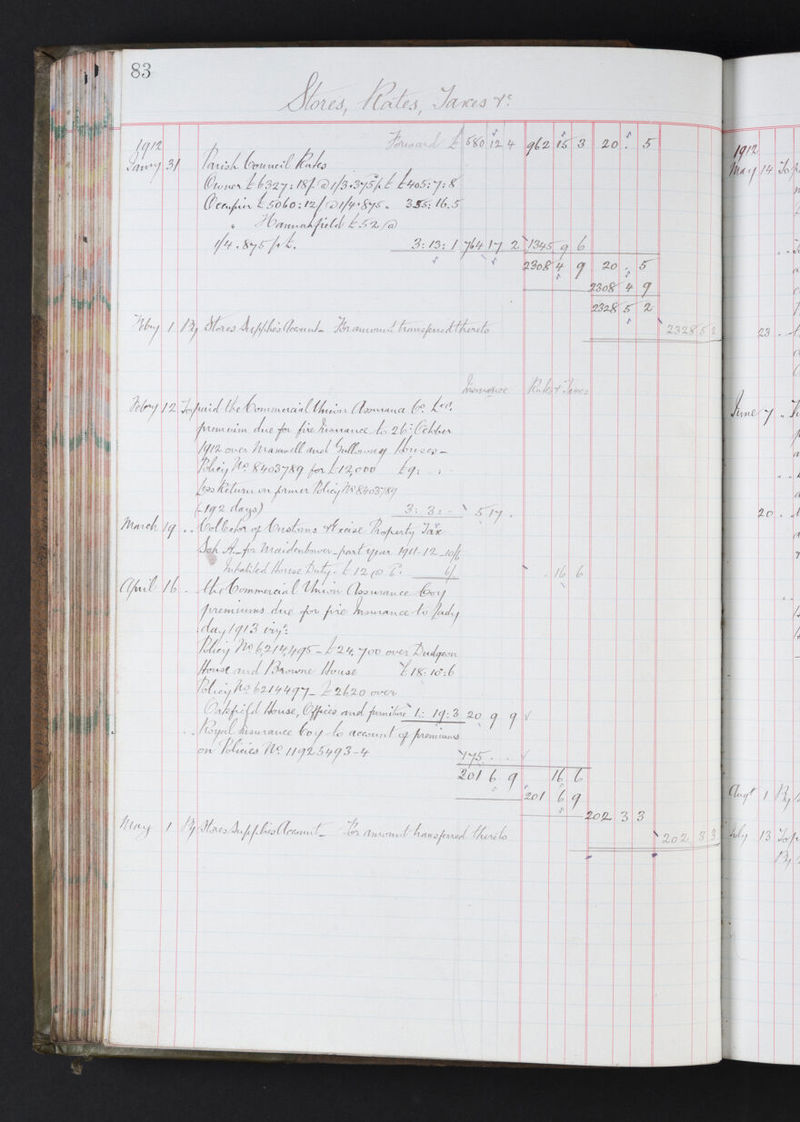 83
Stores, Rates, Taxes &c
1912 Forward £ 580 12 4 962 15 3 20 . 5
Janry 31 Parish Council Rates
Owner £6327:18/ @ 1/3.375 p £ £405:7:8
Occupier £5060:12/ @ 1/4.875 . 355:16:5
" Hannahfield £52 @
1/4.875 p £. 3:13:1 764 17 2 1345 9 6
2308 4 9 20 . 5
2308 4 9
2328 5 2
Febry 1 By Stores Supplies Account - For amount transferred thereto 2328 5 2
Insurance Rates & Taxes
Febry 12 To paid the Commercial Union Assurance Co. Ltd.
premium due for fire Insurance to 26th October
1912 over Maxwell and Galloway Houses -
Policy No 8403789 for £12,000 £9: . .
Less Return on former Policy No 8403789
(192 days) 3:3:- 5 17 .
March 19 . . Collector of Customs & Excise Property Tax
Sch A. for Maidenbower - part year 1911-12 - 10/6
Inhabited House Duty - £12 @ 6. 6/ . 16 6
April 16 . the Commercial Union Assurance Coy
premiums due for fire Insurance to Lady
day 1913 viz:
Policy No 6,214,495 - £24,700 over Dudgeon
House and Browne House £18:10:6
Policy No 6214497 - £2620 over
Oakfield House, Offices and furniture 1:19:3 20 9 9
. . Royal Insurance Coy to account of premiums
on Policies No 11925493-4 175 . .
201 6 9 16 6
201 6 9
202 3 3
May 1 By Stores Supplies Account - For amount transferred thereto 202 3 3
1912
May 14 To
23
June 7
20
Augt 1 By
July 13 To
By